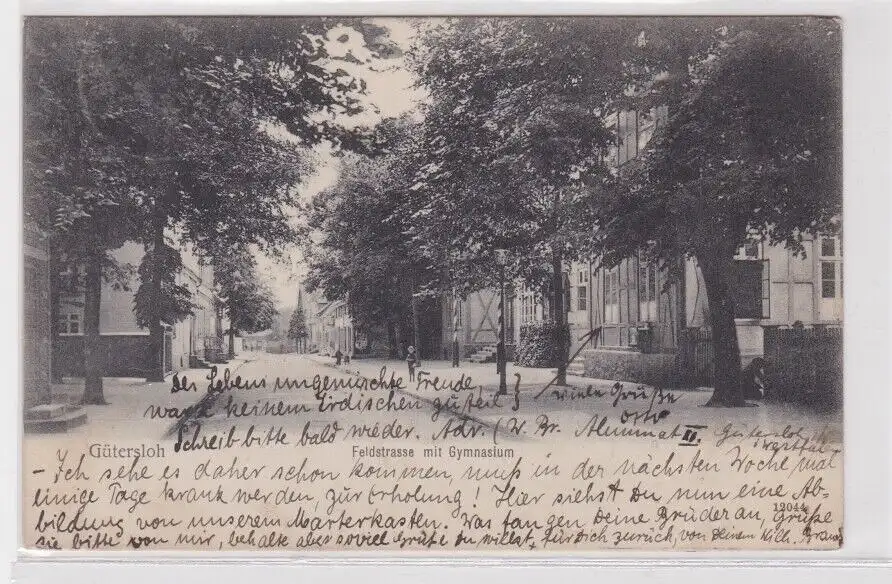 Des Lebens ungemischte Freude,
ward keinem Irdischen zuteil}
viele Grüße
Otto
Schreib bitte bald wieder. Adr. (W. Br. Alumnat II. Gütersloh
Westfal.
Gütersloh
Feldstrasse mit Gymnasium
– Ich sehe es daher schon kommen, muß in der nächsten Woche mal
einige Tage krank werden, zur Erholung! Hier siehst Du nun eine Ab-
12044
bildung von unserem Marterkasten. Was fangen Deine Brüder an, Grüße
sie bitte von mir, behalte aber soviel Grüße Du willst, für Dich zurück, von Deinem Wilh.